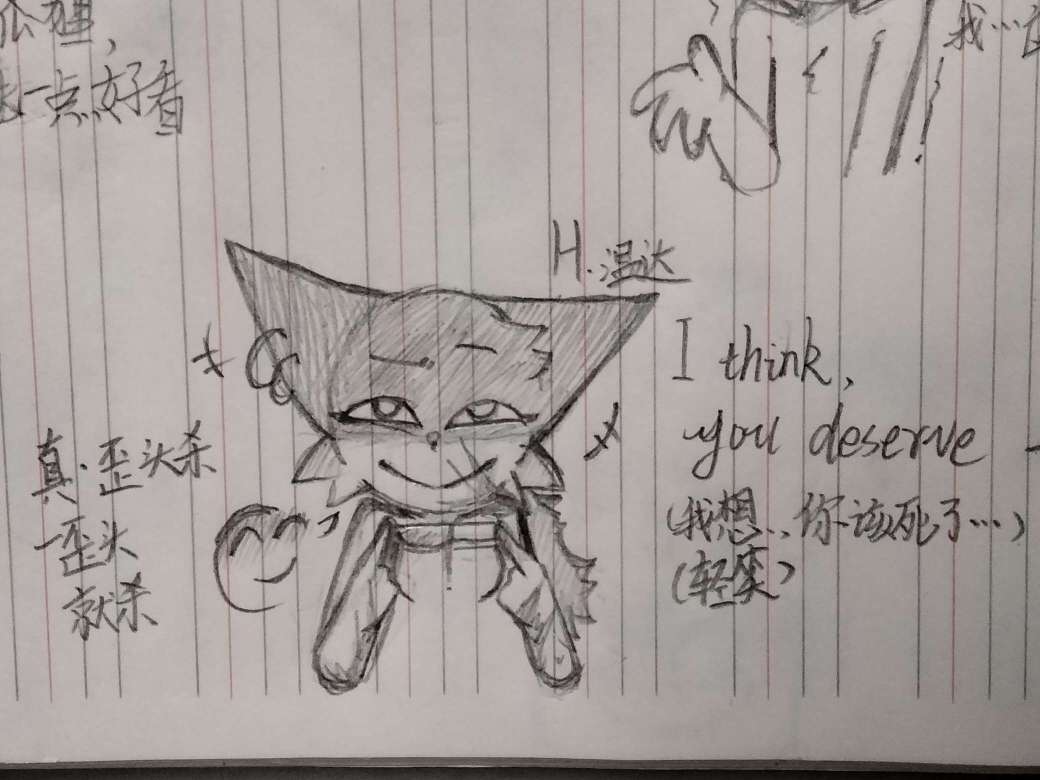 狐狸，
一点好看
我…
H.温达
I think,
you deserve
(我想..你该死了…)
(轻笑)
真·歪头杀
一歪头
就杀